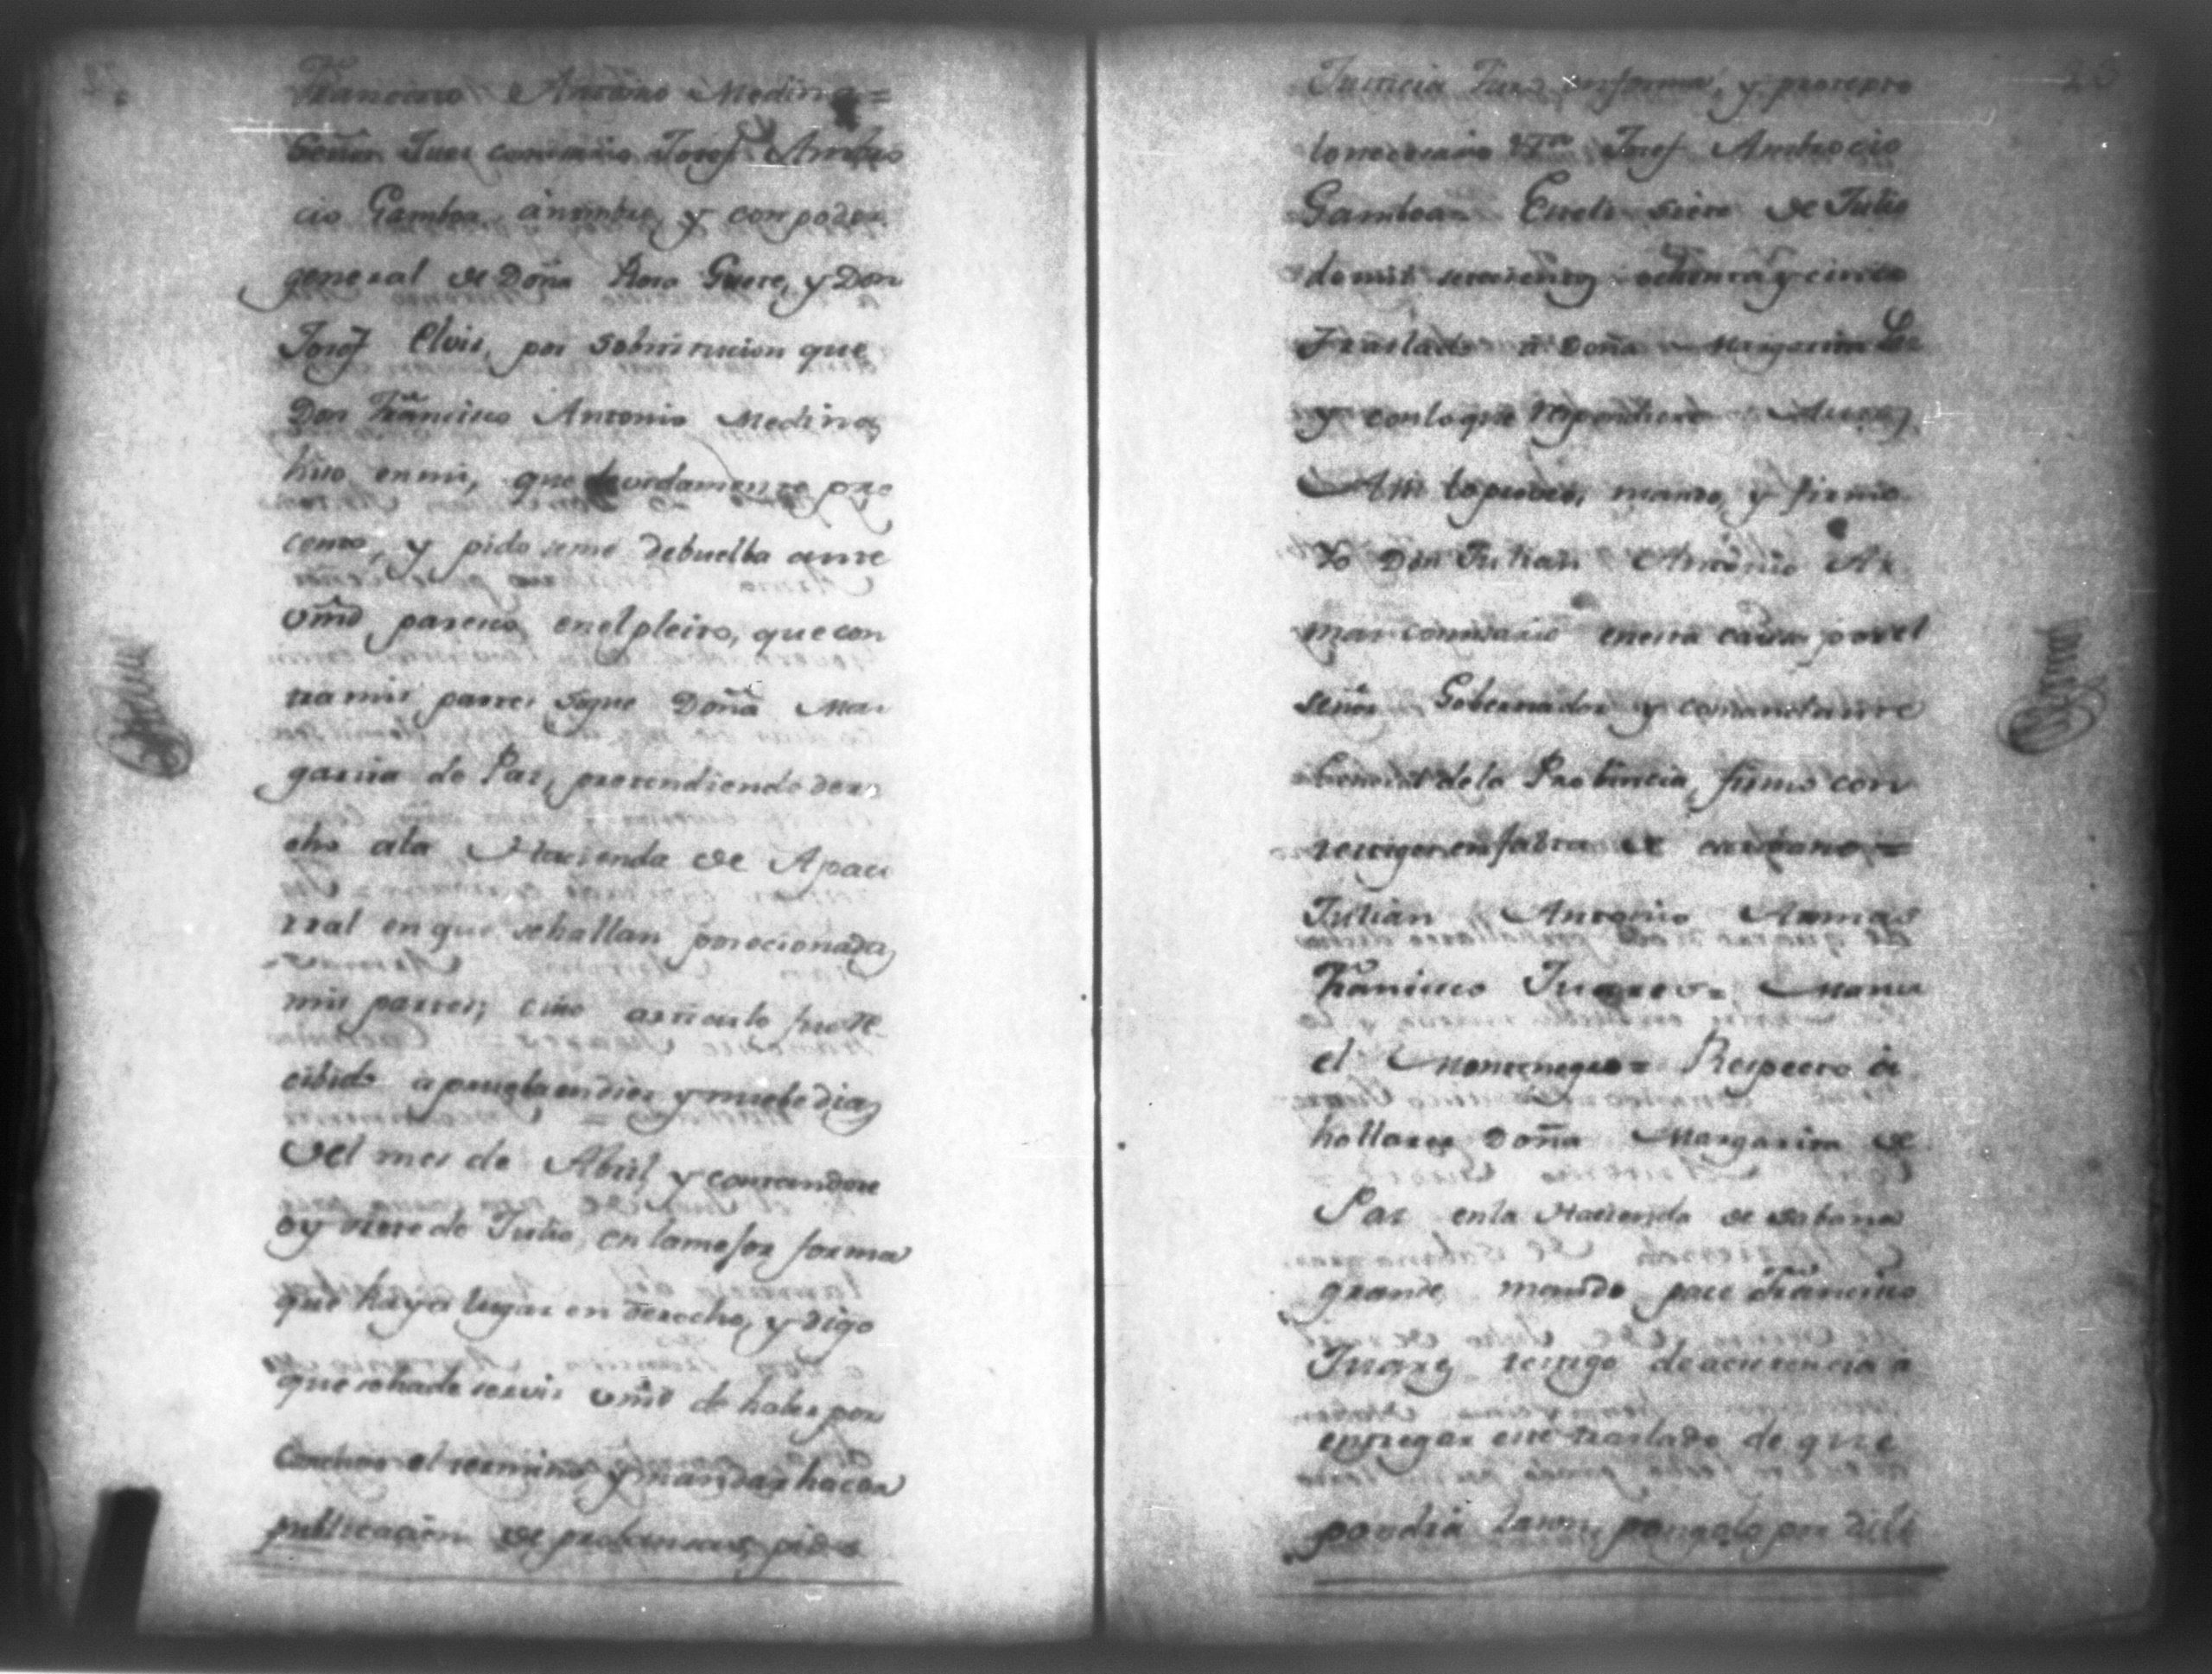 Francisco Antonio Medina=
Señor Juez comisario Josef Ambro
cio Gamboa, ánombre, y con poder
general de Doña Rosa Guere, y Don
Josef Elvis, por sobstitucion que
Don Francisco Antonio Medina,
hiso enmi, que devidamente pre
cento, y pido seme debuelba ante
vmd paresco, enelpleito, que con
tra mis partes sigue Doña Mar
garita de Paz, pretendiendo dere
cho ala Hacienda de Apaci
rral en que sehallan porcionadas
mis partes; cuio articulo fue re
cibido aprueba en dies y nuebe dias
del mes de Abril, y contandose
oy siete de Julio, en lamejor forma
que haya lugar en derecho, y digo
que sehade servir vmd de haber por
concluso el termino y mandar hacer
publicacion de probansas, pido
Justicia Juro enforma, y protexto
lonecesario Josef Ambrocio
Gamboa= Enels siete de Julio
de mil setecientos ochenta y cinco
Traslado á Doña Margarita
y conloque respondiere Autos,
Asi loproveo, mando, y firmo
Yo Don Julian Antonio Ar
mas comisario enesta causa por el
señor Gobernador y comandante
General dela Probincia, firmo con
testigos enfalta de escribano=
Julian Antonio Armas
Francisco Juares= Manu
el Montenegro= Respecto á
hallarse Doña Margarita de
Paz enla Hacienda de Sabana
grande, mando pase Francisco
Juares testigo deacistencia á
entregar este traslado de que
pondrá razon, pongolo por dili